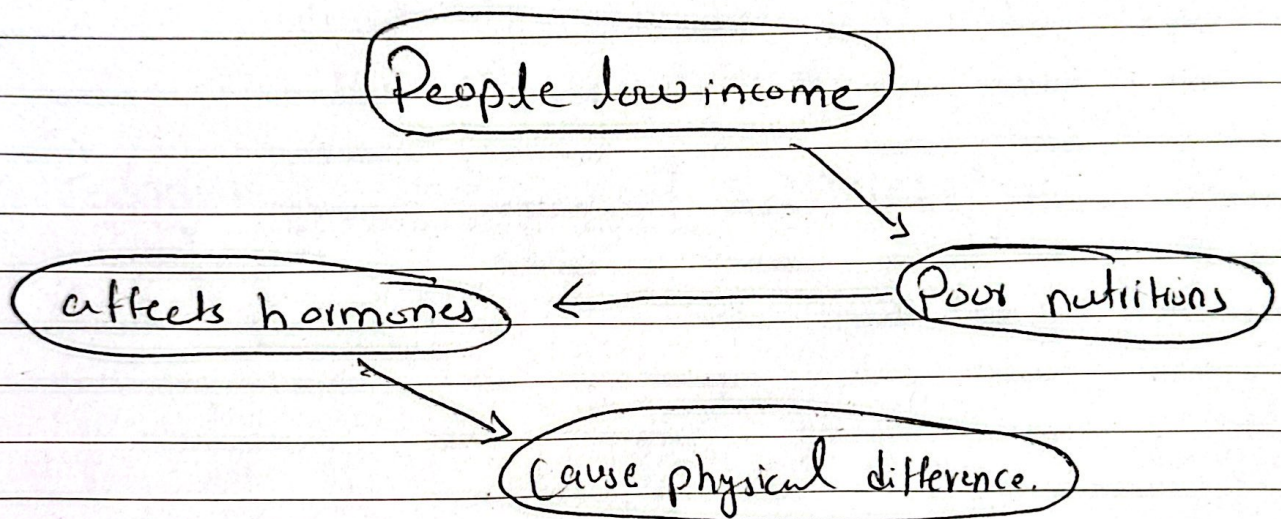 People low income
Poor nutritions
affects hormones
Cause physical difference.